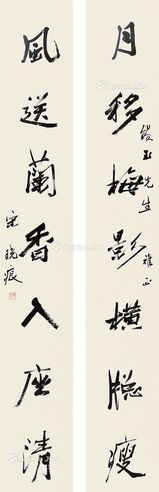 月移梅影橫牕瘦
俊玉先生雅正
風送蘭香入座清
宋曉痕